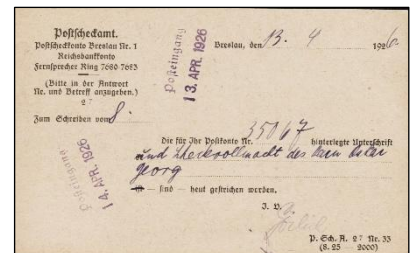 Postscheckamt.
Postscheckkonto Breslau Nr. 1
Reichsbankkonto
Fernsprecher Ring 7680-7683
(Bitte in der Antwort
Nr. und Betreff anzugeben.)
27
Posteingang
13. APR. 1926
Breslau, den 13. 4 1926.
Zum Schreiben vom 8.
Posteingang
14. APR. 1926
Die für Ihr Postkonto Nr. 35067 hinterlegte Unterschrift
und Scheckvollmacht des Herrn Oskar
Georg
ist — sind — heut gestrichen worden.
J. V.
P. Sch. A. 27 Nr. 33
(8. 25 — 2000)